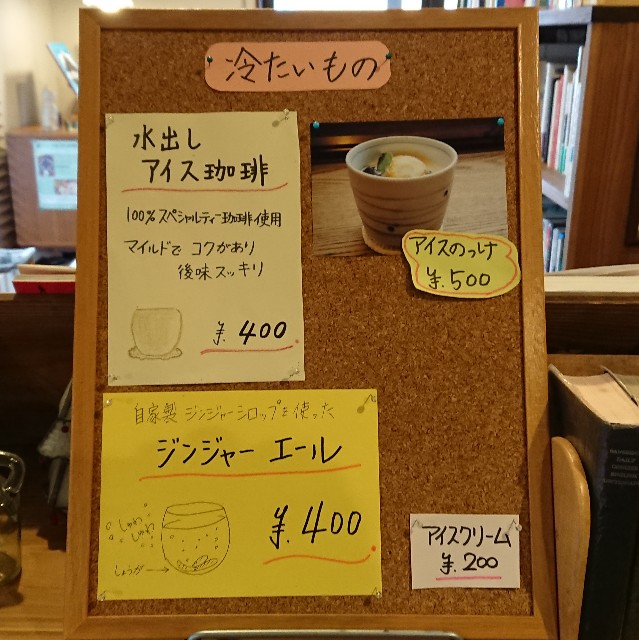 冷たいもの
水出し
アイス珈琲
100%スペシャルティー珈琲使用
マイルドで コクがあり
後味スッキリ
¥.400
アイスのっけ
¥.500
自家製 ジンジャーシロップを使った
ジンジャー エール
しゅわ
しゅわ
しょうが→
¥.400
アイスクリーム
¥.200